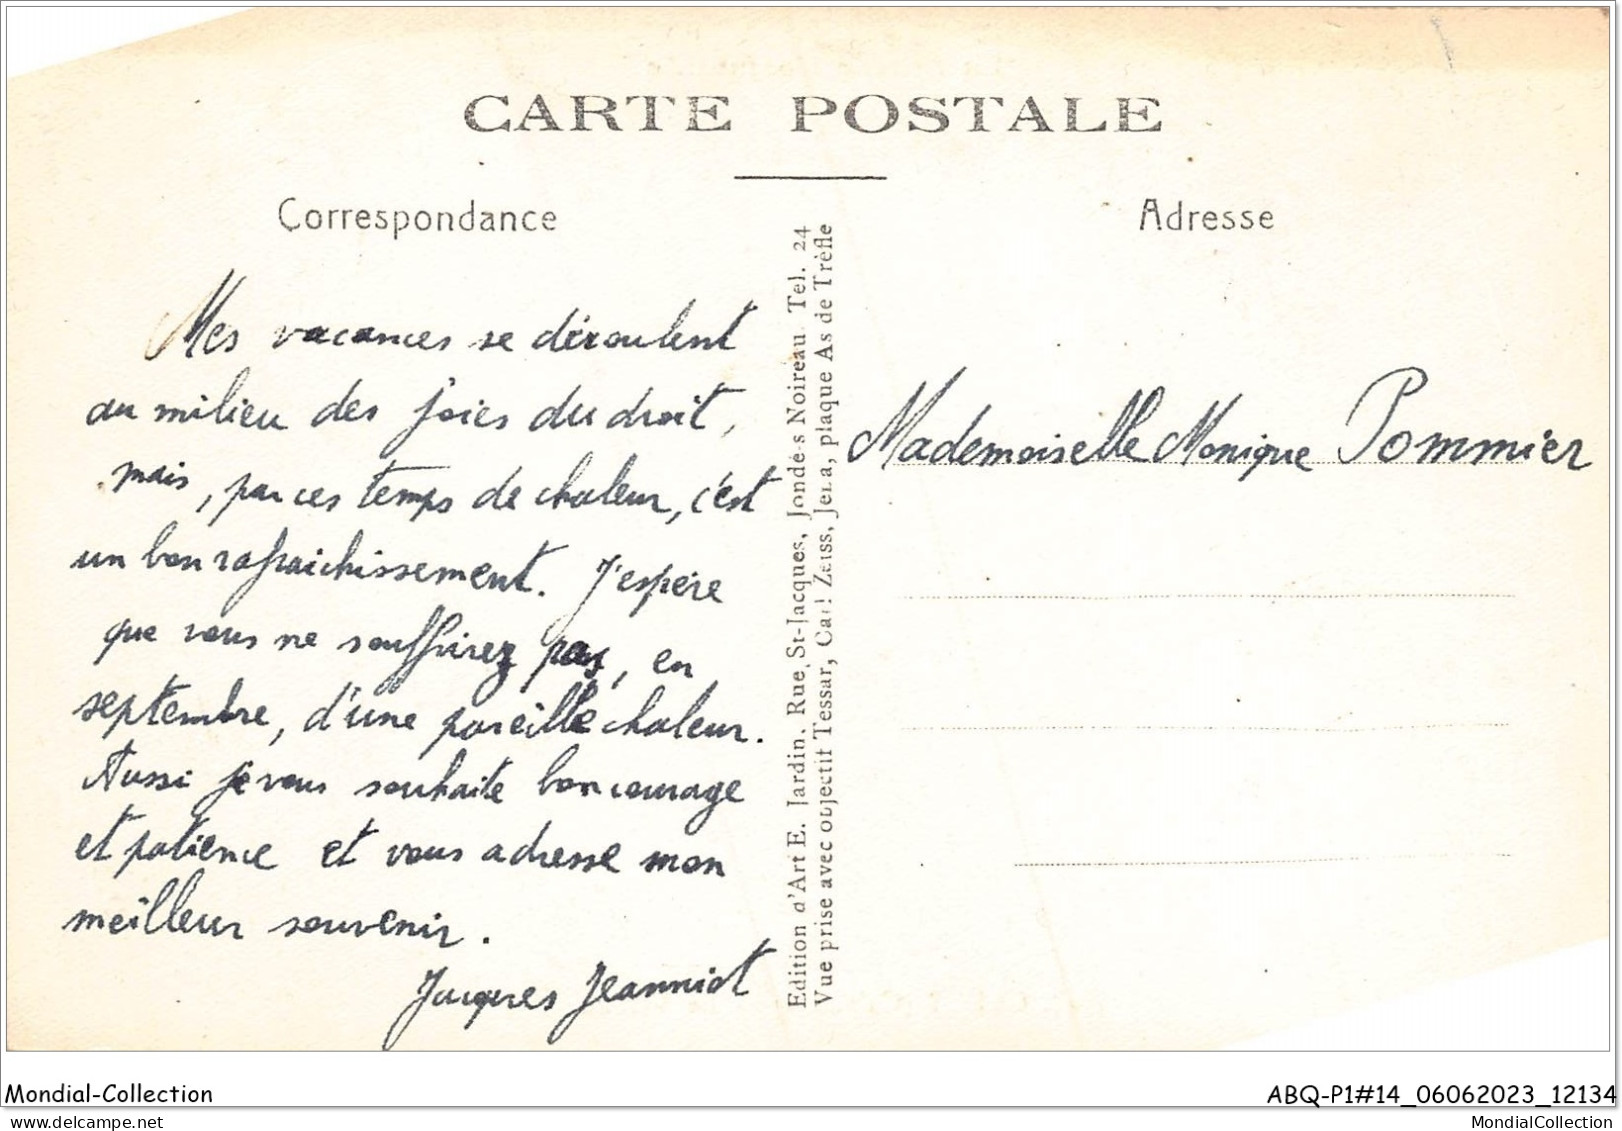 CARTE POSTALE
Correspondance
Adresse
Mes vacances se déroulent
au milieu des joies du droit,
mais, par ces temps de chaleur, c'est
un bon rafraichissement. J'espère
que vous ne souffrirez pas, en
septembre, d'une pareille chaleur.
Aussi je vous souhaite bon courage
et patience et vous adresse mon
meilleur souvenir.
Jacques Jeanniot
Edition d'Art E. Jardin, Rue St-Jacques, Condé-s-Noireau Tel. 24
Vue prise avec objectif Tessar, Carl Zeiss, Jena, plaque As de Trèfle
Mademoiselle Monique Pommier
Mondial-Collection
ABQ-P1#14_06062023_12134
mondial-collection
MondialCollection